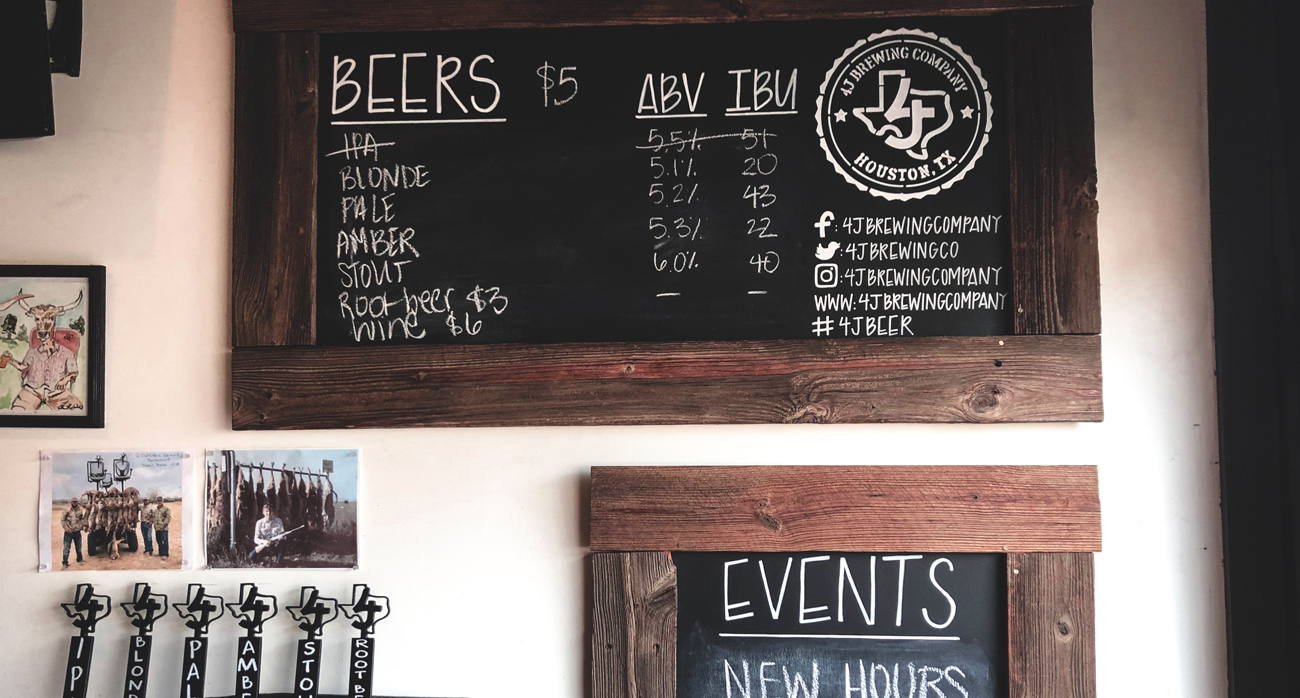 BEERS $5 ABV IBU
IPA 5.5% 51
BLONDE 5.1% 20
PALE 5.2% 43
AMBER 5.3% 22
STOUT 6.0% 40
Root beer $3 — —
wine $6
4J BREWING COMPANY
4J
HOUSTON, TX
: 4JBREWINGCOMPANY
: 4JBREWINGCO
: 4JBREWINGCOMPANY
WWW: 4JBREWINGCOMPANY
# 4JBEER
EVENTS
NEW HOURS
IP
BLOND
PAL
AMBE
STOU
ROOT BE